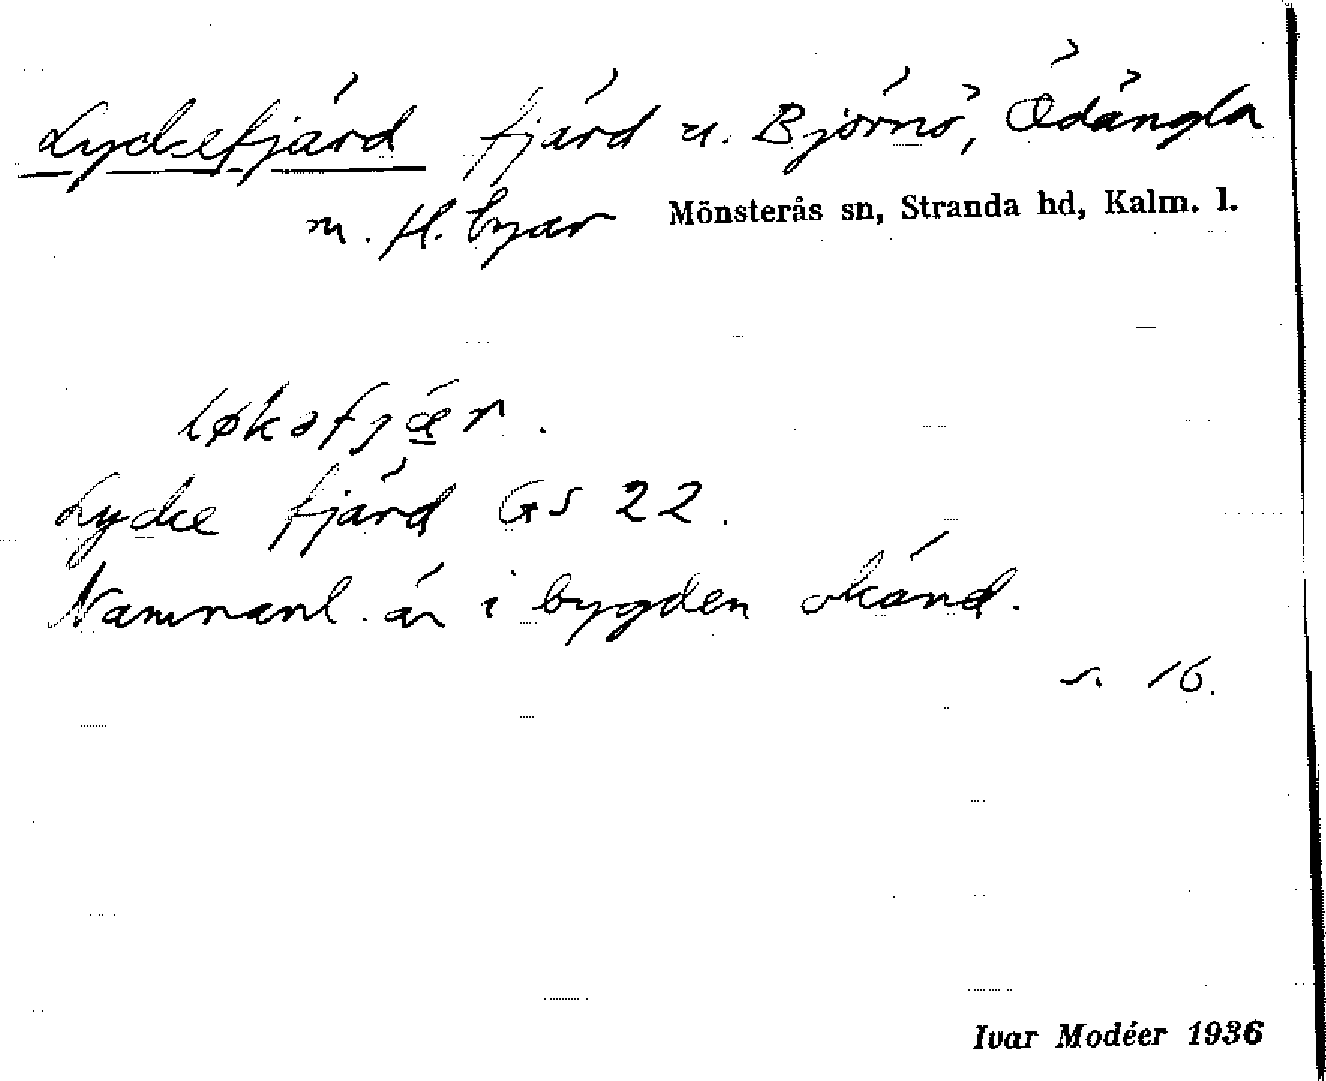 Lyckefjärd fjärd u. Björnö, Ödängla
m. fl. byar Mönsterås sn, Stranda hd, Kalm. l.
løkəfjǽr.
Lycke fjärd GS 22.
Namnanl. är i bygden okänd.
s. 16.
Ivar Modéer 1936